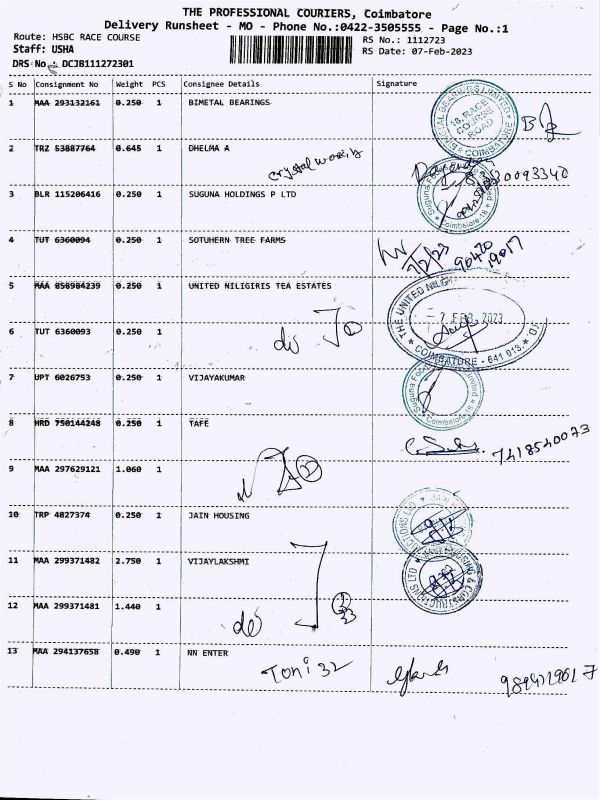 THE PROFESSIONAL COURIERS, Coimbatore
Delivery Runsheet - MO - Phone No.:0422-3505555 - Page No.:1
Route: HSBC RACE COURSE
RS No.: 1112723
Staff: USHA
RS Date: 07-Feb-2023
DRS No : DCJB111272301
S No Consignment No Weight PCS Consignee Details Signature
1 MAA 293132161 0.250 1 BIMETAL BEARINGS
BIMETAL BEARINGS LIMITED
18, RACE COURSE ROAD
COIMBATORE
2 TRZ 53887764 0.645 1 DHELMA A
crystal works
3 BLR 115206416 0.250 1 SUGUNA HOLDINGS P LTD
Suguna
Coimbatore-18
4 TUT 6360094 0.250 1 SOTUHERN TREE FARMS
7/2/23
90420
19017
5 MAA 856984239 0.250 1 UNITED NILIGIRIS TEA ESTATES
THE UNITED NILG
- 7 FEB 2023
COIMBATORE - 641 018.
6 TUT 6360093 0.250 1
do
7 UPT 6026753 0.250 1 VIJAYAKUMAR
Suguna Foods Limited
Coimbatore-18
8 HRD 750144248 0.250 1 TAFE
7418540073
9 MAA 297629121 1.060 1
10 TRP 4827374 0.250 1 JAIN HOUSING
11 MAA 299371482 2.750 1 VIJAYLAKSHMI
JAIN HOUSING & CONSTRUCTIONS LTD
12 MAA 299371481 1.440 1
do
13 MAA 294137658 0.490 1 NN ENTER
Toni 32